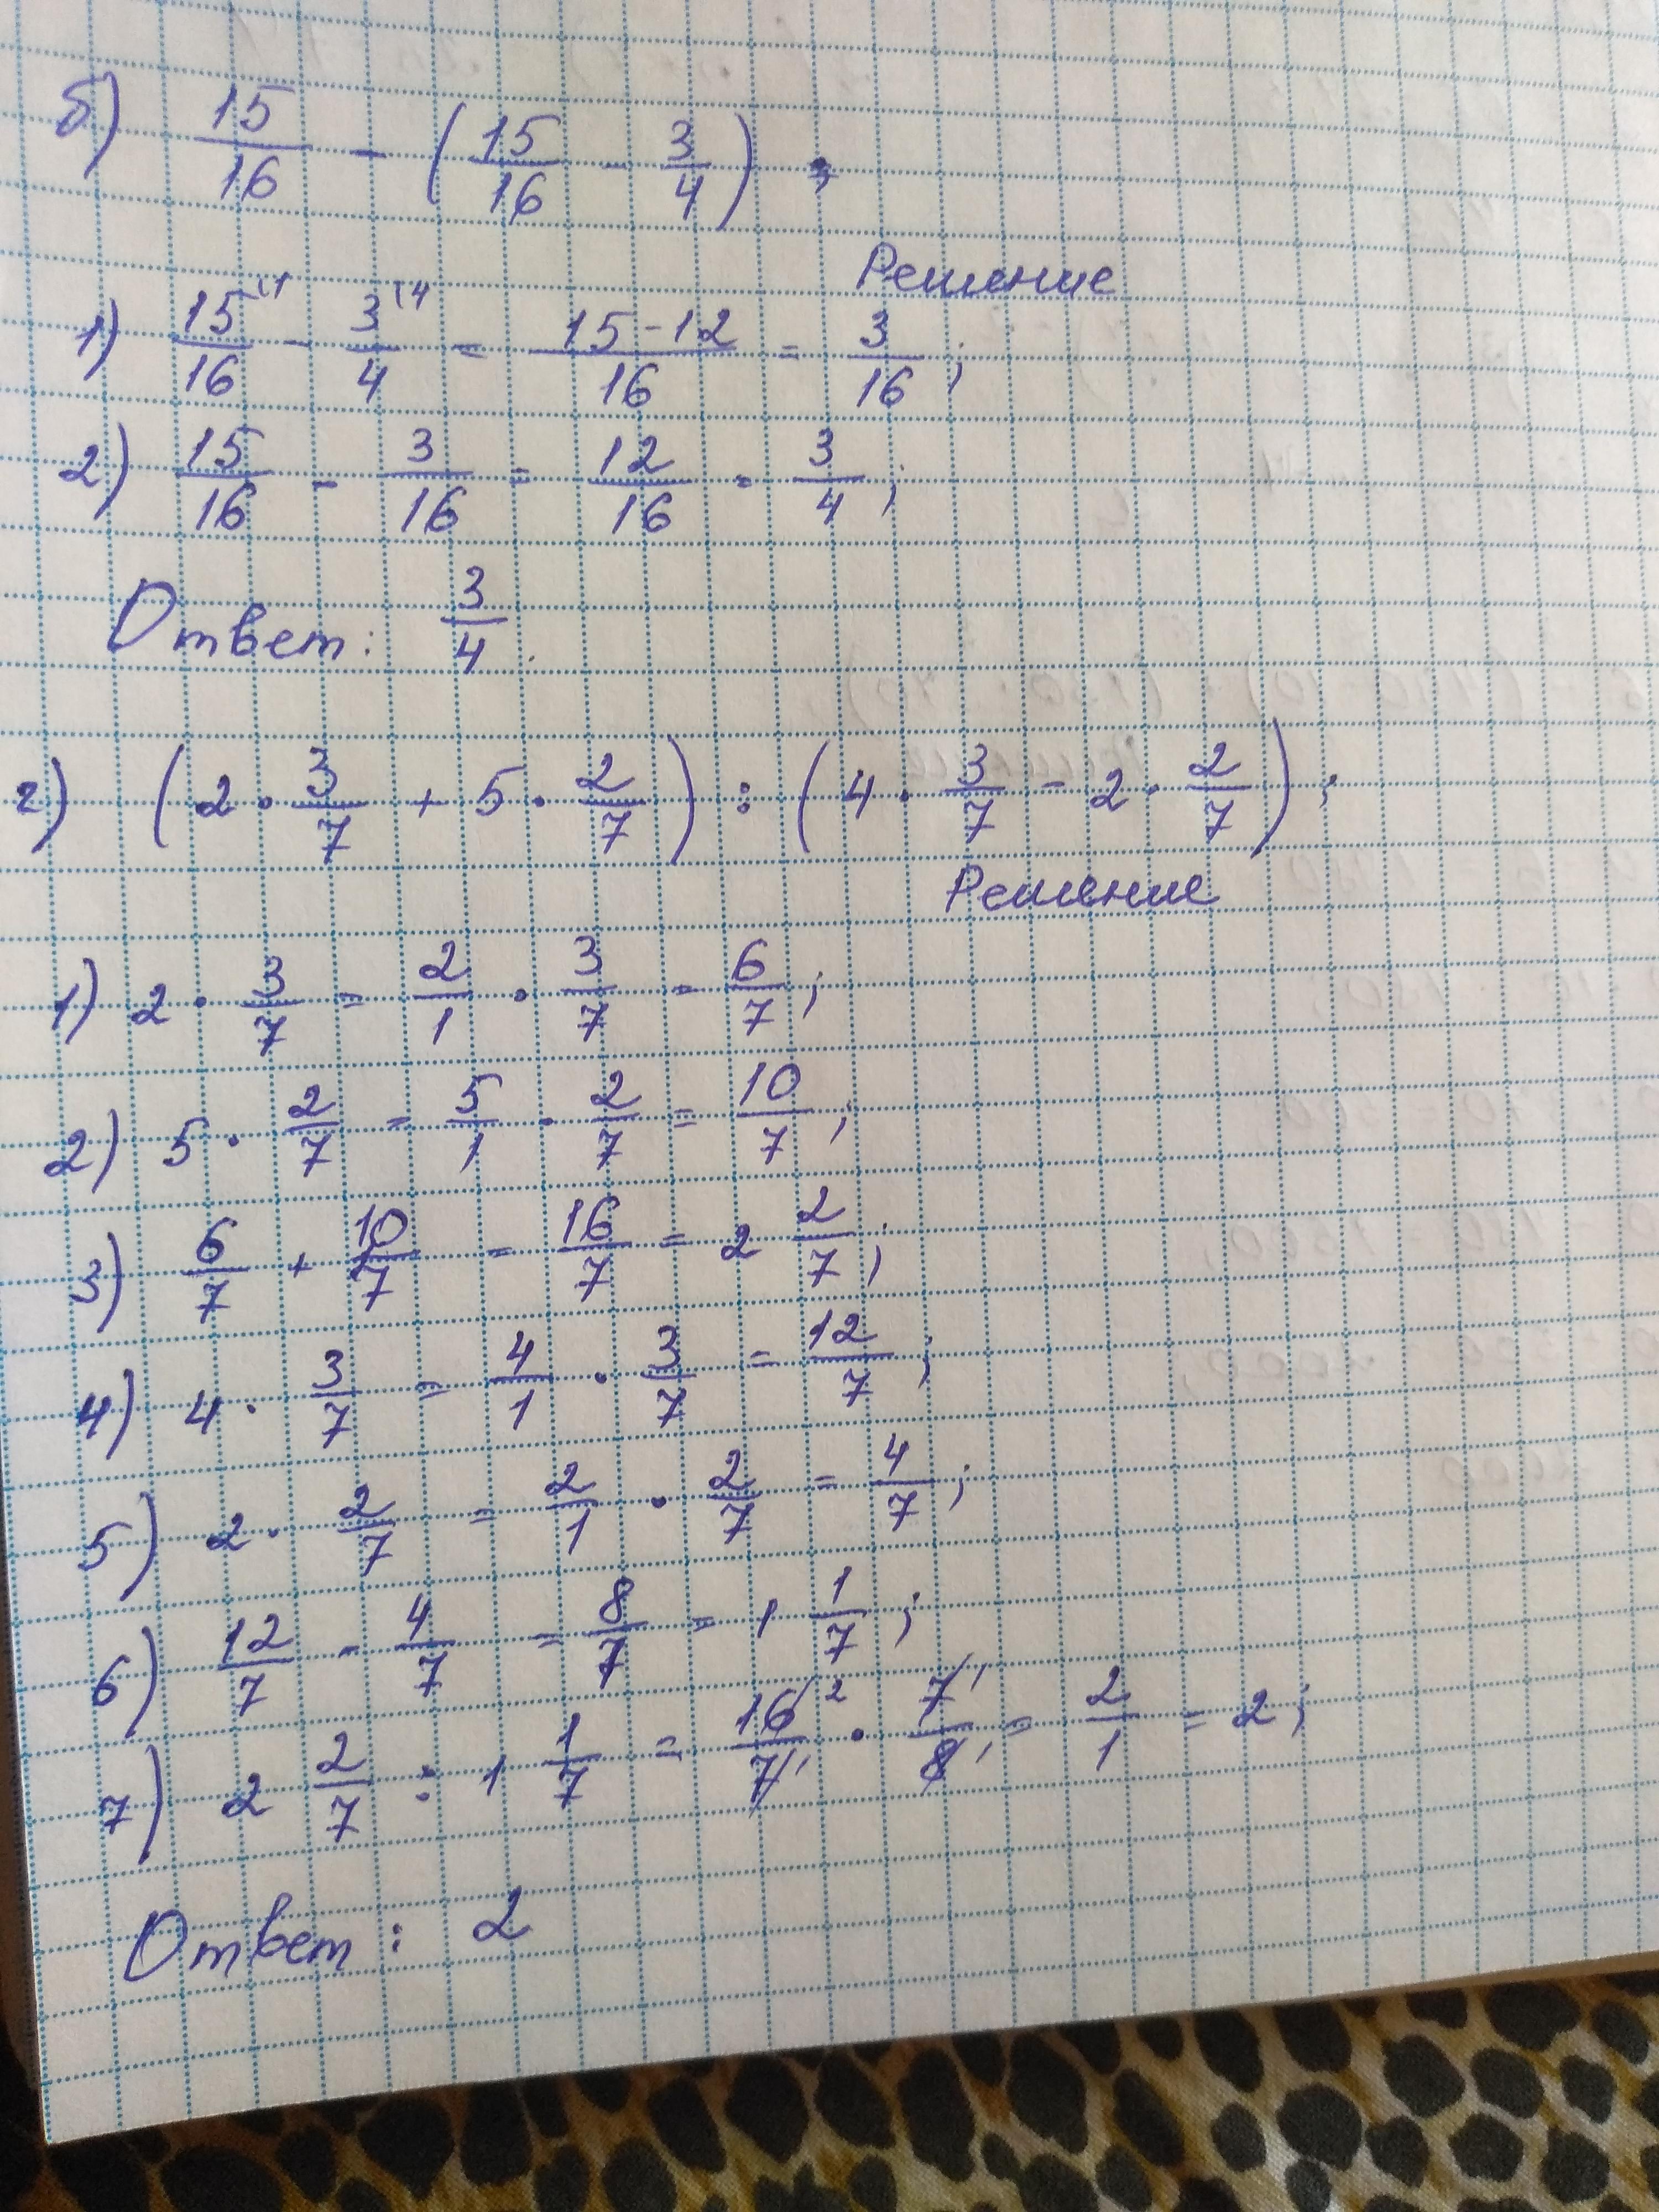 б) 15/16 - (15/16 - 3/4);
Решение
1) 15⁽¹/16 - 3⁽⁴/4 = (15-12)/16 = 3/16;
2) 15/16 - 3/16 = 12/16 = 3/4;
Ответ: 3/4.
г) (2 · 3/7 + 5 · 2/7) : (4 · 3/7 - 2 · 2/7);
Решение
1) 2 · 3/7 = 2/1 · 3/7 = 6/7;
2) 5 · 2/7 = 5/1 · 2/7 = 10/7;
3) 6/7 + 10/7 = 16/7 = 2 2/7;
4) 4 · 3/7 = 4/1 · 3/7 = 12/7;
5) 2 · 2/7 = 2/1 · 2/7 = 4/7;
6) 12/7 - 4/7 = 8/7 = 1 1/7;
7) 2 2/7 : 1 1/7 = 16²/7¹ · 7¹/8¹ = 2/1 = 2;
Ответ: 2